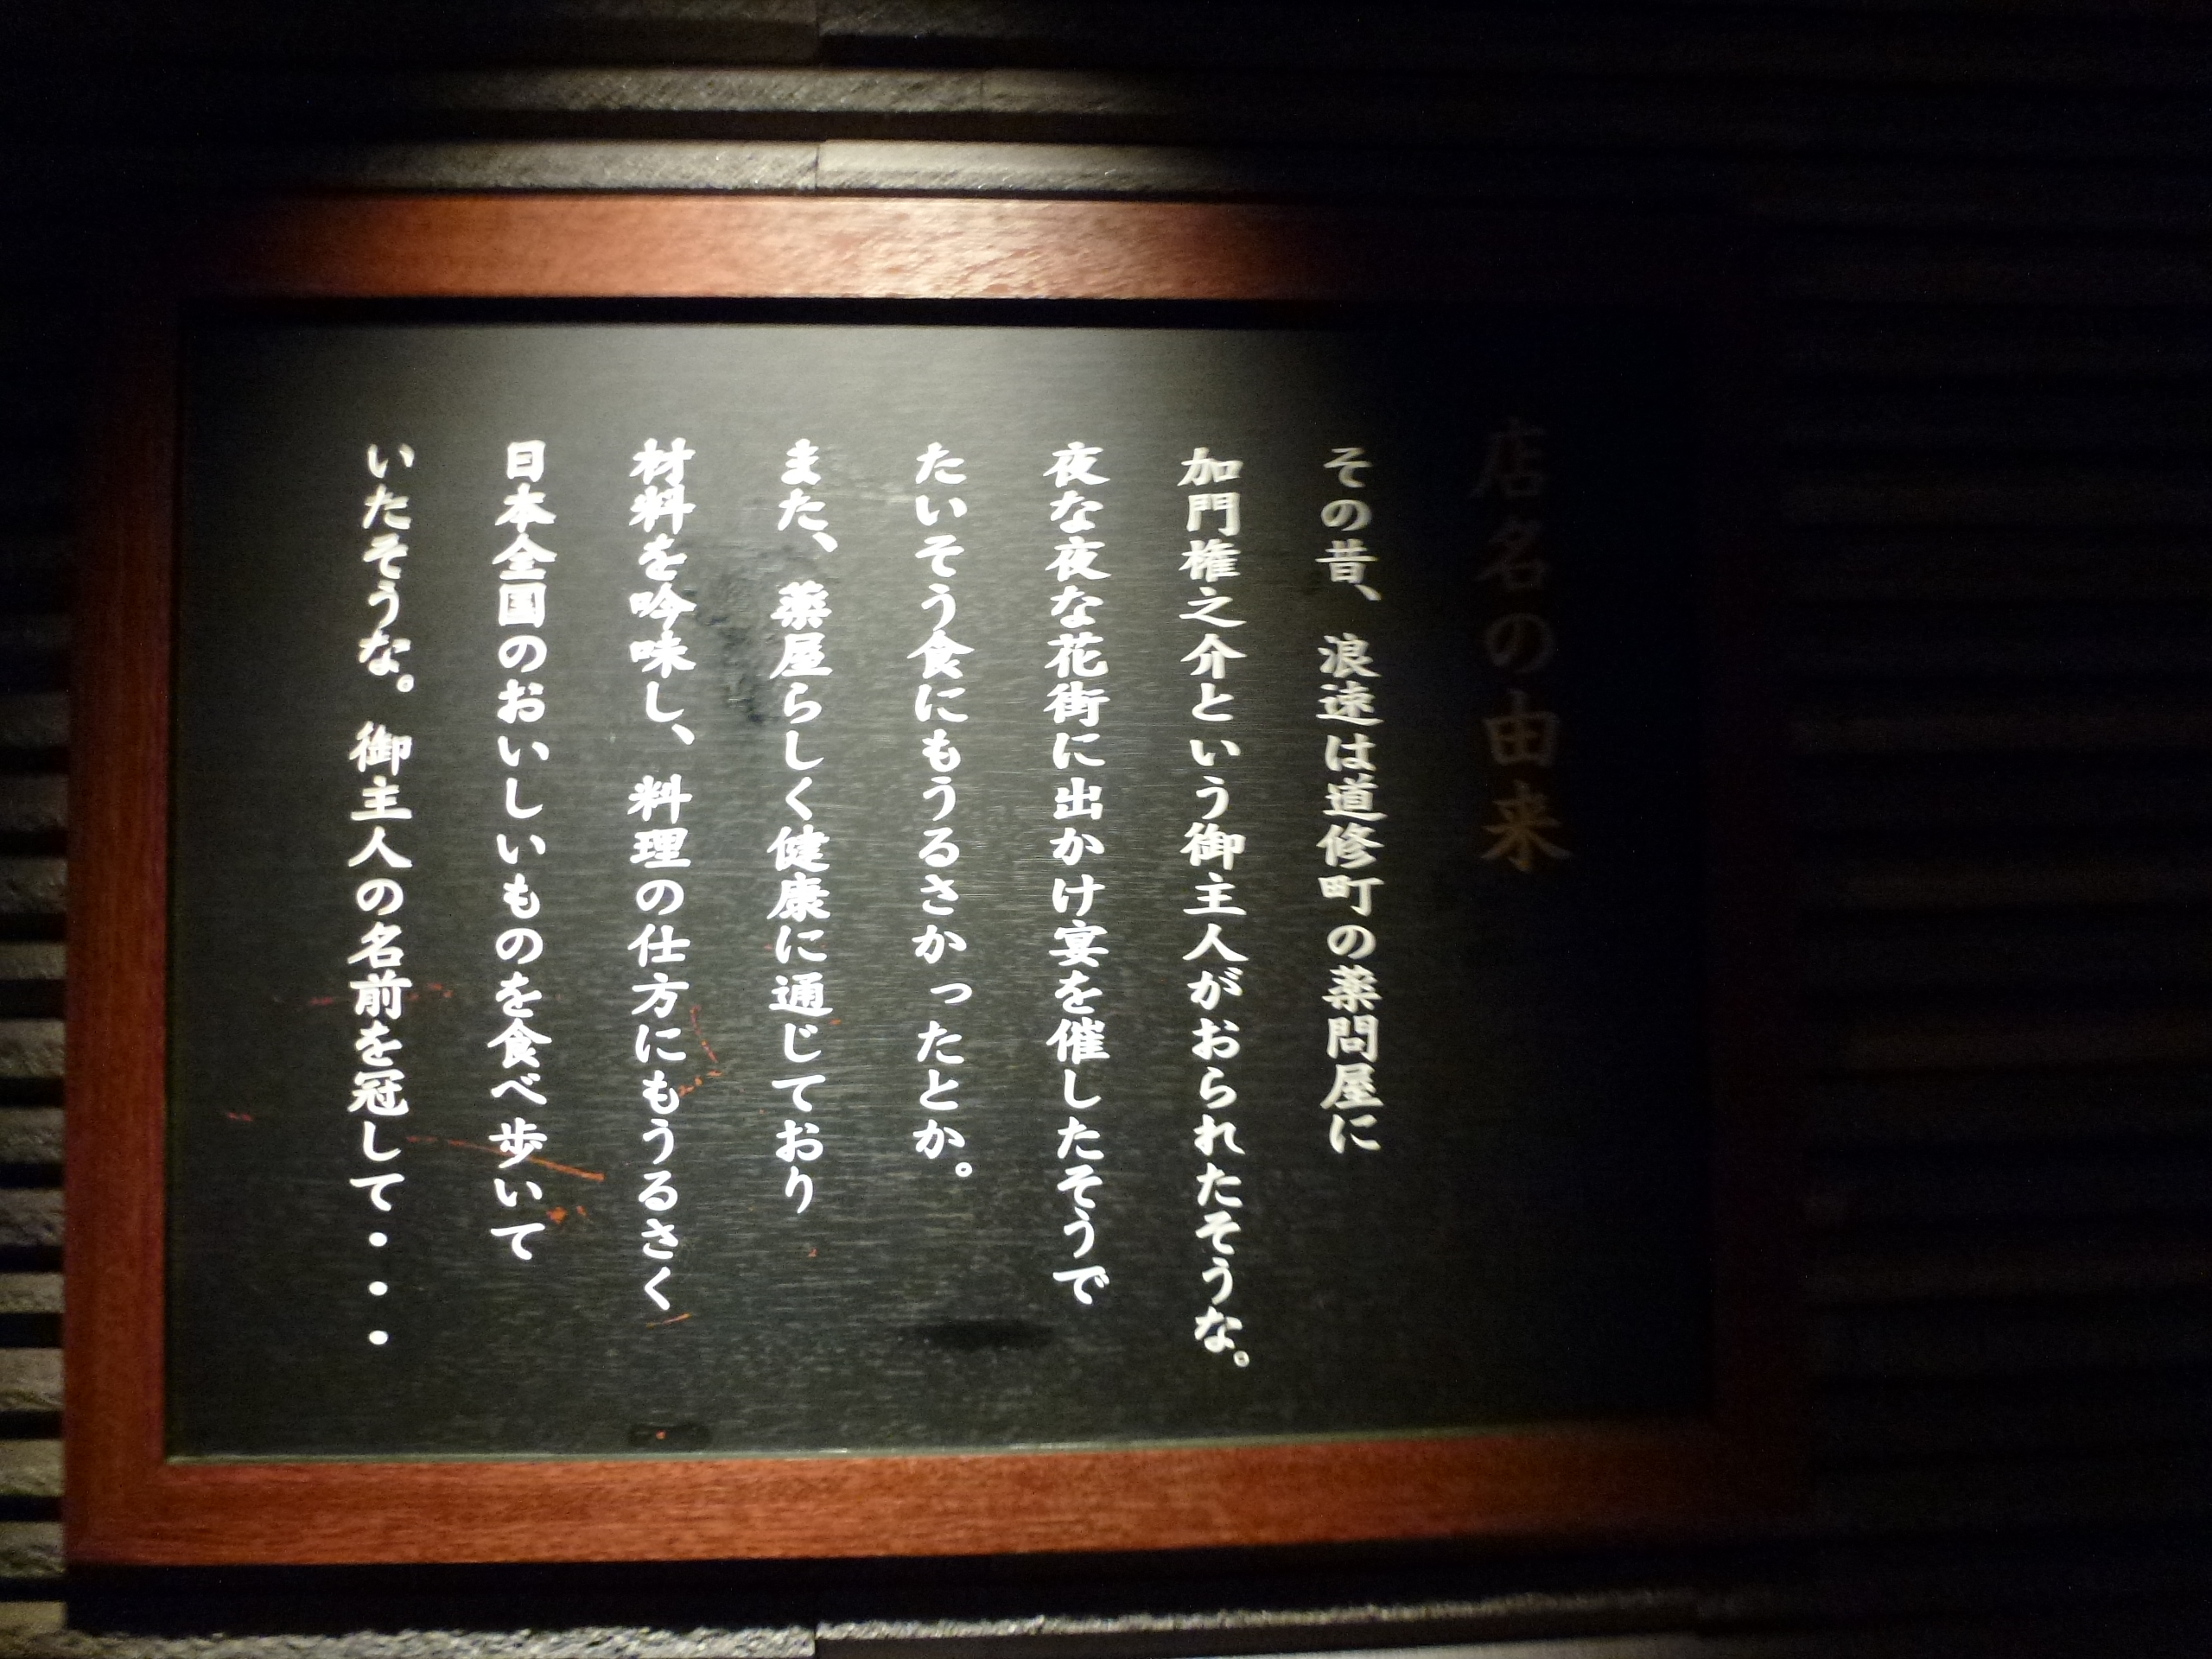 店名の由来
その昔、浪速は道修町の薬問屋に
加門権之介という御主人がおられたそうな。
夜な夜な花街に出かけ宴を催したそうで
たいそう食にもうるさかったとか。
また、薬屋らしく健康に通じており
材料を吟味し、料理の仕方にもうるさく
日本全国のおいしいものを食べ歩いて
いたそうな。御主人の名前を冠して・・・